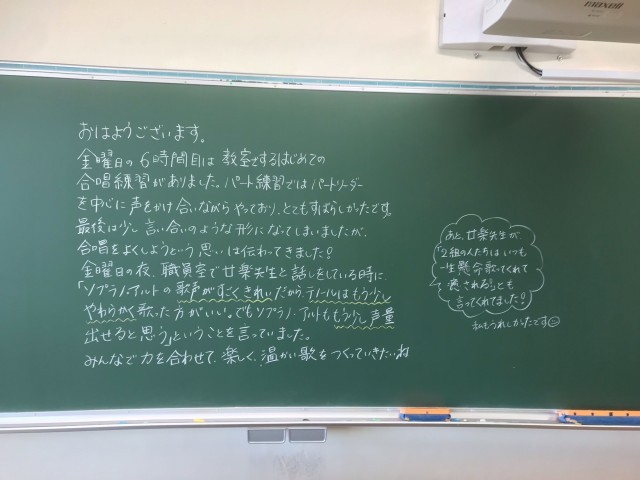 maxell
おはようございます。
金曜日の6時間目は 教室でするはじめての
合唱練習がありました。パート練習ではパートリーダー
を中心に声をかけ合いながらやっており、とてもすばらしかったです。
最後は少し言い合いのような形になってしまいましたが、
合唱をよくしようという思いは伝わってきました!
金曜日の夜、職員室で甘楽先生と話しをしている時に、
「ソプラノ、アルトの歌声がすごくきれいだから、テノールはもう少し
やわらかく歌った方がいい。でもソプラノ、アルトももう少し声量
出せると思う」ということを言っていました。
みんなで力を合わせて、楽しく、温かい歌をつくっていきたいね
あと、甘楽先生が
「2組の人たちはいつも
一生懸命歌ってくれて
癒される!」とも
言ってくれてました!
私もうれしかったです